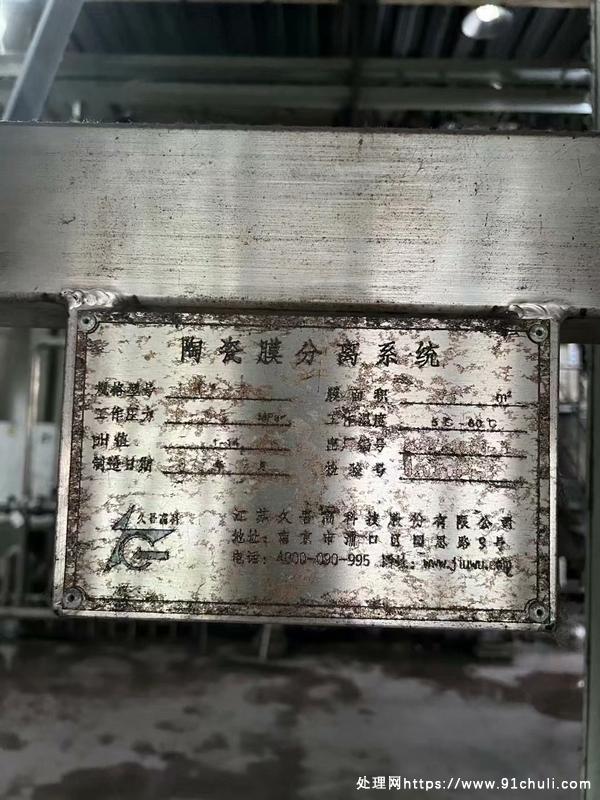 陶瓷膜分离系统
规格型号 膜面积 m²
工作压力 MPa 工作温度 5℃-60℃
PH值 1-14 出厂编号
制造日期 年 月 检验号
久吾高科
江苏久吾高科技股份有限公司
地址：南京市浦口区园思路8号
电话：4000-090-995 网址：www.jiuwu.com
处理网https://www.91chuli.com